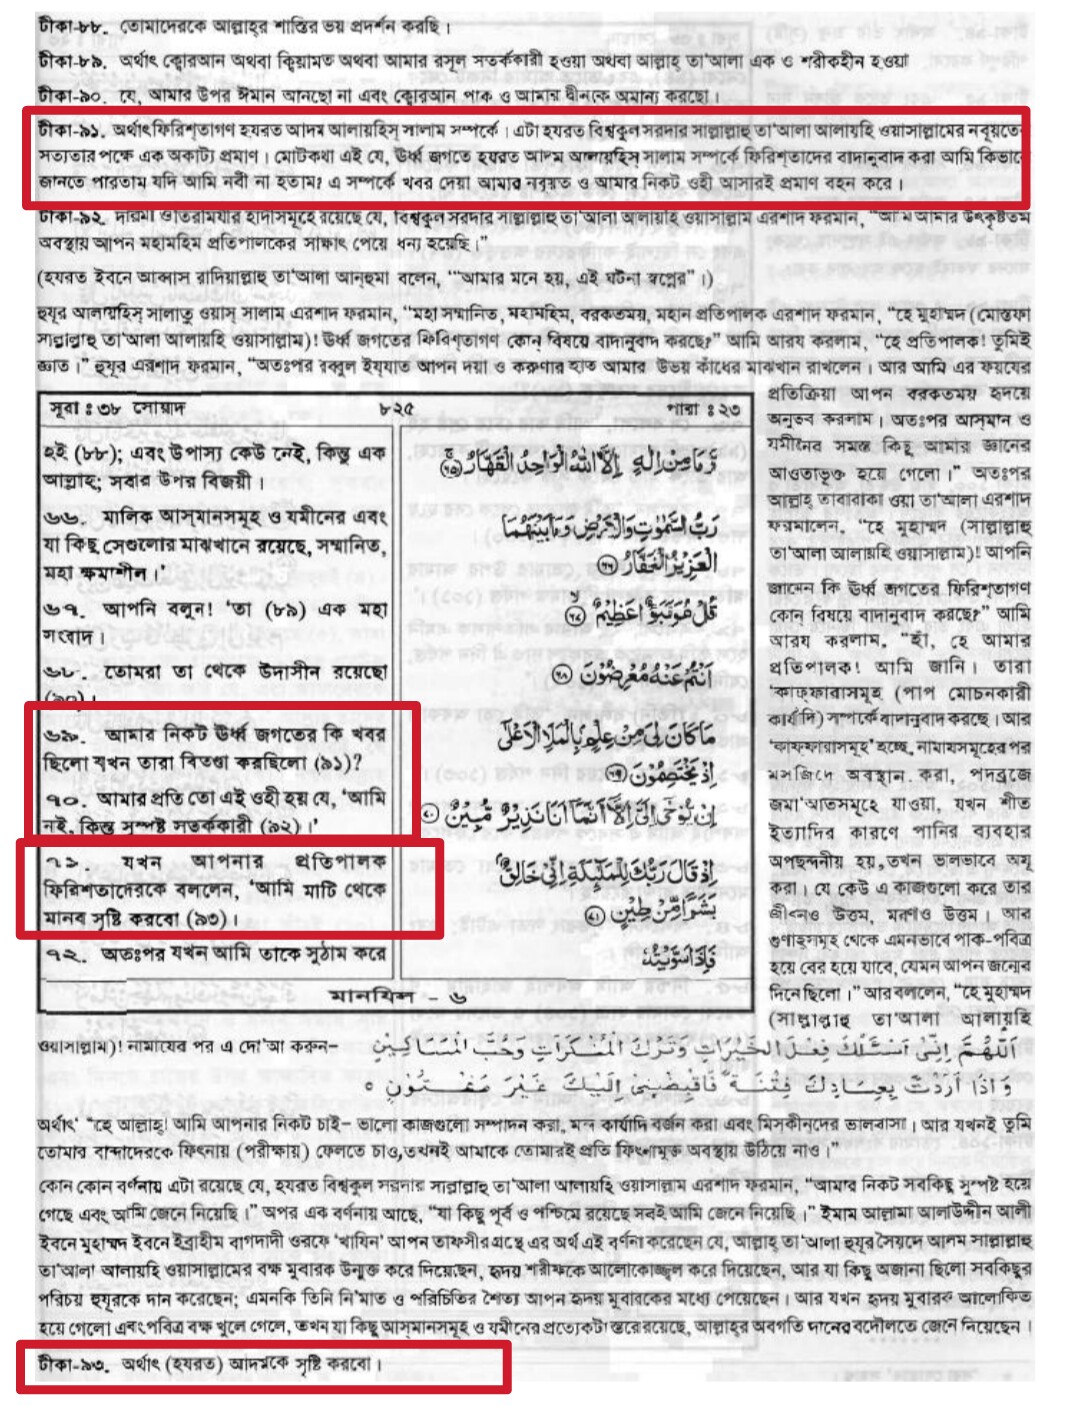 টীকা-৮৮. তোমাদেরকে আল্লাহ্‌র শাস্তির ভয় প্রদর্শন করছি।
টীকা-৮৯. অর্থাৎ ক্বোরআন অথবা ক্বিয়ামত অথবা আমার রসূল সতর্ককারী হওয়া অথবা আল্লাহ্‌ তা'আলা এক ও শরীকহীন হওয়া
টীকা-৯০. যে, আমার উপর ঈমান আনছো না এবং ক্বোরআন পাক ও আমার দ্বীনকে অমান্য করছো।
টীকা-৯১. অর্থাৎ ফিরিশ্‌তাগণ হযরত আদম আলায়হিস্ সালাম সম্পর্কে। এটা হযরত বিশ্বকুল সরদার সাল্লাল্লাহু তা'আলা আলায়হি ওয়াসাল্লামের নবূয়তের
সত্যতার পক্ষে এক অকাট্য প্রমাণ। মোটকথা এই যে, ঊর্ধ্ব জগতে হযরত আদম আলায়হিস্ সালাম সম্পর্কে ফিরিশ্‌তাদের বাদানুবাদ করা আমি কিভাবে
জানতে পারতাম যদি আমি নবী না হতাম? এ সম্পর্কে খবর দেয়া আমার নবূয়ত ও আমার নিকট ওহী আসারই প্রমাণ বহন করে।
টীকা-৯২. দারমী ও তিরমিযীর হাদীসসমূহে রয়েছে যে, বিশ্বকুল সরদার সাল্লাল্লাহু তা'আলা আলায়হি ওয়াসাল্লাম এরশাদ ফরমান, "আমি আমার উৎকৃষ্টতম
অবস্থায় আপন মহামহিম প্রতিপালকের সাক্ষাৎ পেয়ে ধন্য হয়েছি।"
(হযরত ইবনে আব্বাস রাদিয়াল্লাহু তা'আলা আন্‌হুমা বলেন, "আমার মনে হয়, এই ঘটনা স্বপ্নের"।)
হুযূর আলায়হিস্ সালাতু ওয়াস্ সালাম এরশাদ ফরমান, "মহা সম্মানিত, মহামহিম, বরকতময়, মহান প্রতিপালক এরশাদ ফরমান, "হে মুহাম্মদ (মোস্তফা
সাল্লাল্লাহু তা'আলা আলায়হি ওয়াসাল্লাম)! ঊর্ধ্ব জগতের ফিরিশ্‌তাগণ কোন্ বিষয়ে বাদানুবাদ করছে?" আমি আরয করলাম, "হে প্রতিপালক! তুমিই
জ্ঞাত।" হুযূর এরশাদ ফরমান, "অতঃপর রব্বুল ইয্‌যাত আপন দয়া ও করুণার হাত আমার উভয় কাঁধের মাঝখান রাখলেন। আর আমি এর ফয়যের
প্রতিক্রিয়া আপন বরকতময় হৃদয়ে
অনুভব করলাম। অতঃপর আস্‌মান ও
যমীনের সমস্ত কিছু আমার জ্ঞানের
আওতাভূক্ত হয়ে গেলো।" অতঃপর
আল্লাহ্ তাবারাকা ওয়া তা'আলা এরশাদ
ফরমালেন, "হে মুহাম্মদ (সাল্লাল্লাহু
তা'আলা আলায়হি ওয়াসাল্লাম)! আপনি
জানেন কি ঊর্ধ্ব জগতের ফিরিশ্‌তাগণ
কোন্ বিষয়ে বাদানুবাদ করছে?" আমি
আরয করলাম, "হাঁ, হে আমার
প্রতিপালক! আমি জানি। তারা
'কাফ্‌ফারাসমূহ (পাপ মোচনকারী
কার্যাদি) সম্পর্কে বাদানুবাদ করছে। আর
'কাফ্‌ফারাসমূহ' হচ্ছে, নামাযসমূহের পর
মসজিদে অবস্থান করা, পদব্রজে
জমা'আতসমূহে যাওয়া, যখন শীত
ইত্যাদির কারণে পানির ব্যবহার
অপছন্দনীয় হয়, তখন ভালভাবে অযূ
করা। যে কেউ এ কাজগুলো করে তার
জীবনও উত্তম, মরণও উত্তম। আর
গুণাহসমূহ থেকে এমনভাবে পাক-পবিত্র
হয়ে বের হয়ে যাবে, যেমন আপন জন্মের
দিনে ছিলো।" আর বললেন, "হে মুহাম্মদ
(সাল্লাল্লাহু তা'আলা আলায়হি
সূরা : ৩৮ সোয়াদ ৮২৫ পারা : ২৩
হই (৮৮); এবং উপাস্য কেউ নেই, কিন্তু এক
আল্লাহ্; সবার উপর বিজয়ী।
৬৬. মালিক আস্‌মানসমূহ ও যমীনের এবং
যা কিছু সেগুলোর মাঝখানে রয়েছে, সম্মানিত,
মহা ক্ষমাশীল।'
৬৭. আপনি বলুন! 'তা (৮৯) এক মহা
সংবাদ।
৬৮. তোমরা তা থেকে উদাসীন রয়েছো
(৯০)।
৬৯. আমার নিকট ঊর্ধ্ব জগতের কি খবর
ছিলো যখন তারা বিতণ্ডা করছিলো (৯১)?
৭০. আমার প্রতি তো এই ওহী হয় যে, 'আমি
নই, কিন্তু সুস্পষ্ট সতর্ককারী (৯২)।'
৭১. যখন আপনার প্রতিপালক
ফিরিশতাদেরকে বললেন, 'আমি মাটি থেকে
মানব সৃষ্টি করবো (৯৩)।
৭২. অতঃপর যখন আমি তাকে সুঠাম করে
وَّمَا مِنْ اِلٰهٍ اِلَّا اللّٰهُ الْوَاحِدُ الْقَهَّارُ ﴿٦٥﴾
رَبُّ السَّمٰوٰتِ وَالْاَرْضِ وَمَا بَيْنَهُمَا
الْعَزِيْزُ الْغَفَّارُ ﴿٦٦﴾
قُلْ هُوَ نَبَؤٌا عَظِيْمٌ ﴿٦٧﴾
اَنْتُمْ عَنْهُ مُعْرِضُوْنَ ﴿٦٨﴾
مَا كَانَ لِيَ مِنْ عِلْمٍۭ بِالْمَلَاِ الْاَعْلٰٓى
اِذْ يَخْتَصِمُوْنَ ﴿٦٩﴾
اِنْ يُّوْحٰٓى اِلَيَّ اِلَّآ اَنَّمَآ اَنَا نَذِيْرٌ مُّبِيْنٌ ﴿٧٠﴾
اِذْ قَالَ رَبُّكَ لِلْمَلٰٓئِكَةِ اِنِّيْ خَالِقٌۢ
بَشَرًا مِّنْ طِيْنٍ ﴿٧١﴾
فَاِذَا سَوَّيْتُهٗ
মানযিল - ৬
ওয়াসাল্লাম)! নামাযের পর এ দো'আ করুন- اَللّٰهُمَّ اِنِّىْ اَسْئَلُكَ فِعْلَ الْخَيْرَاتِ وَتَرْكَ الْمُنْكَرَاتِ وَحُبَّ الْمَسَاكِيْنِ
وَاِذَا اَرَدْتَّ بِعِبَادِكَ فِتْنَةً فَاقْبِضْنِىْ اِلَيْكَ غَيْرَ مَفْتُوْنٍ ٥
অর্থাৎ "হে আল্লাহ্! আমি আপনার নিকট চাই- ভালো কাজগুলো সম্পাদন করা, মন্দ কার্যাদি বর্জন করা এবং মিস্‌কীন্‌দের ভালবাসা। আর যখনই তুমি
তোমার বান্দাদেরকে ফিৎনায় (পরীক্ষায়) ফেলতে চাও, তখনই আমাকে তোমারই প্রতি ফিৎনামুক্ত অবস্থায় উঠিয়ে নাও।"
কোন কোন বর্ণনায় এটা রয়েছে যে, হযরত বিশ্বকুল সরদার সাল্লাল্লাহু তা'আলা আলায়হি ওয়াসাল্লাম এরশাদ ফরমান, "আমার নিকট সবকিছু সুস্পষ্ট হয়ে
গেছে এবং আমি জেনে নিয়েছি।" অপর এক বর্ণনায় আছে, "যা কিছু পূর্ব ও পশ্চিমে রয়েছে সবই আমি জেনে নিয়েছি।" ইমাম আল্লামা আলাউদ্দীন আলী
ইবনে মুহাম্মদ ইবনে ইব্রাহীম বাগদাদী ওরফে 'খাযিন' আপন তাফসীর গ্রন্থে এর অর্থ এই বর্ণনা করেছেন যে, আল্লাহ্ তা'আলা হুযূর সৈয়দে আলম সাল্লাল্লাহু
তা'আলা আলায়হি ওয়াসাল্লামের বক্ষ মুবারক উন্মুক্ত করে দিয়েছেন, হৃদয় শরীফকে আলোকোজ্জ্বল করে দিয়েছেন, আর যা কিছু অজানা ছিলো সবকিছুর
পরিচয় হুযূরকে দান করেছেন; এমনকি তিনি নি'মাত ও পরিচিতির শৈত্য আপন হৃদয় মুবারকের মধ্যে পেয়েছেন। আর যখন হৃদয় মুবারক আলোকিত
হয়ে গেলো এবং পবিত্র বক্ষ খুলে গেলে, তখন যা কিছু আস্‌মানসমূহ ও যমীনের প্রত্যেকটা স্তরে রয়েছে, আল্লাহ্‌র অবগতি দানের বদৌলতে জেনে নিয়েছেন।
টীকা-৯৩. অর্থাৎ (হযরত) আদমকে সৃষ্টি করবো।